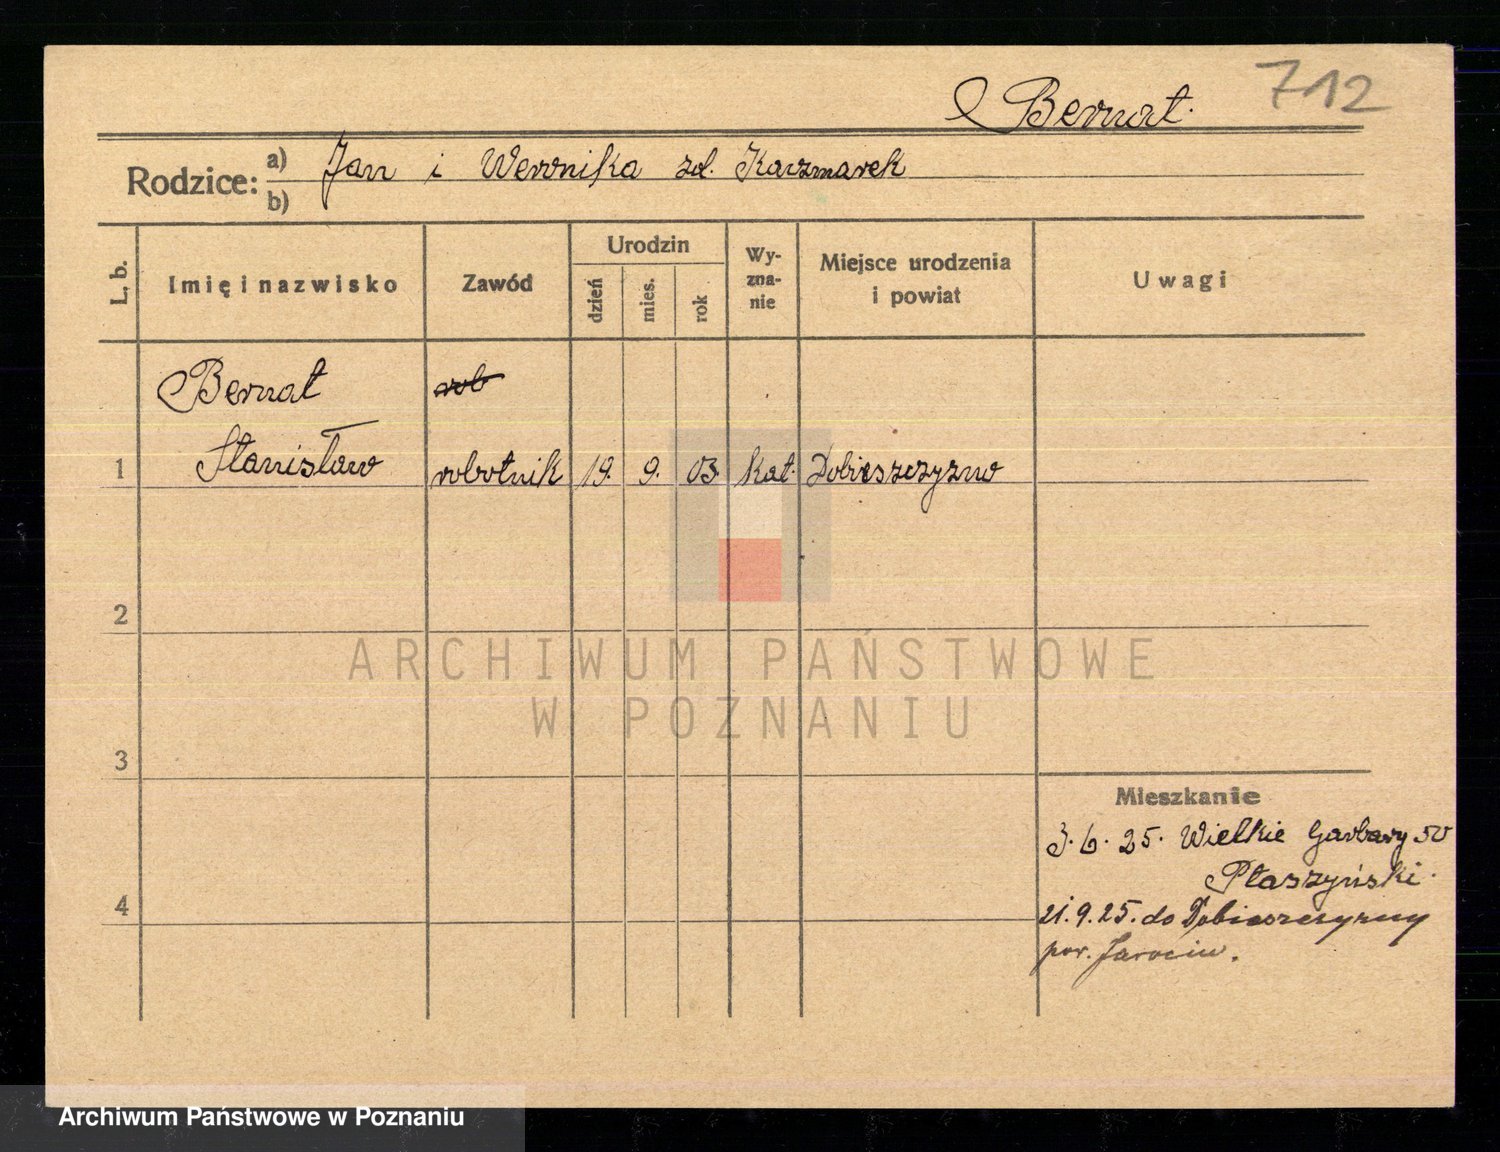 712
Bernat.
Rodzice: a) Jan i Weronika zd. Kaczmarek
b)
L. b. Imię i nazwisko Zawód Urodzin dzień mies. rok Wyznanie Miejsce urodzenia i powiat Uwagi
Bernat rob
1 Stanisław robotnik 19. 9. 03. kat. Dobieszczyzno
2
ARCHIWUM PAŃSTWOWE
W POZNANIU
3
Mieszkanie
3. 6. 25. Wielkie Garbary 50
Ptaszyński.
4
21. 9. 25. do Dobieszczyzny
pow. Jarocin.
Archiwum Państwowe w Poznaniu